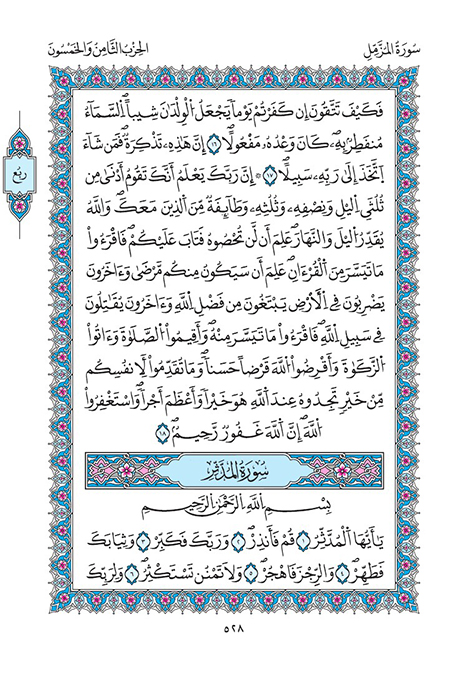 سورة المزمل
الحزب الثامن والخمسون
ربع
فَكَيْفَ تَتَّقُونَ إِن كَفَرْتُمْ يَوْماً يَجْعَلُ اُلْوِلْدَٰنَ شِيباً اَلسَّمَآءُ
مُنفَطِرٌۢ بِهِۦ كَانَ وَعْدُهُۥ مَفْعُولاًۖ ١٦ إِنَّ هَٰذِهِۦ تَذْكِرَةٌۖ فَمَن شَآءَ
اَ۪تَّخَذَ إِلَىٰ رَبِّهِۦ سَبِيلاًۖ ١٧ ۞ إِنَّ رَبَّكَ يَعْلَمُ أَنَّكَ تَقُومُ أَدْنَىٰ مِن
ثُلُثَيِ اِ۬ليْلِ وَنِصْفِهِۦ وَثُلُثِهِۦ وَطَآئِفَةٌ مِّنَ اَ۬لذِينَ مَعَكَۖ وَاللَّهُ
يُقَدِّرُ اُ۬ليْلَ وَالنَّهَارَۖ عَلِمَ أَن لَّن تُحْصُوهُ فَتَابَ عَلَيْكُمْۖ فَاقْرَءُواْ
مَا تَيَسَّرَ مِنَ اَ۬لْقُرْءَانِۖ عَلِمَ أَن سَيَكُونُ مِنكُم مَّرْضَىٰ وَءَاخَرُونَ
يَضْرِبُونَ فِي اِ۬لْأَرْضِ يَبْتَغُونَ مِن فَضْلِ اِ۬للَّهِ وَءَاخَرُونَ يُقَٰتِلُونَ
فِي سَبِيلِ اِ۬للَّهِۖ فَاقْرَءُواْ مَا تَيَسَّرَ مِنْهُۖ وَأَقِيمُواْ اُ۬لصَّلَوٰةَ وَءَاتُواْ
اُ۬لزَّكَوٰةَ وَأَقْرِضُواْ اُ۬للَّهَ قَرْضاً حَسَناًۖ وَمَا تُقَدِّمُواْ لِأَنفُسِكُم
مِّنْ خَيْرٍ تَجِدُوهُ عِندَ اَ۬للَّهِ هُوَ خَيْراً وَأَعْظَمَ أَجْراًۖ وَاسْتَغْفِرُواْ
اُ۬للَّهَۖ إِنَّ اَ۬للَّهَ غَفُورٌ رَّحِيمٌۖ ١٨
سورة المدثر
بِسْمِ اِ۬للَّهِ اِ۬لرَّحْمَٰنِ اِ۬لرَّحِيمِ
يَٰأَيُّهَا اَ۬لْمُدَّثِّرُ ١ قُمْ فَأَنذِرْۖ ٢ وَرَبَّكَ فَكَبِّرْۖ ٣ وَثِيَابَكَ
فَطَهِّرْۖ ٤ وَالرِّجْزَ فَاهْجُرْۖ ٥ وَلَا تَمْنُن تَسْتَكْثِرُۖ ٦ وَلِرَبِّكَ
٥٢٨